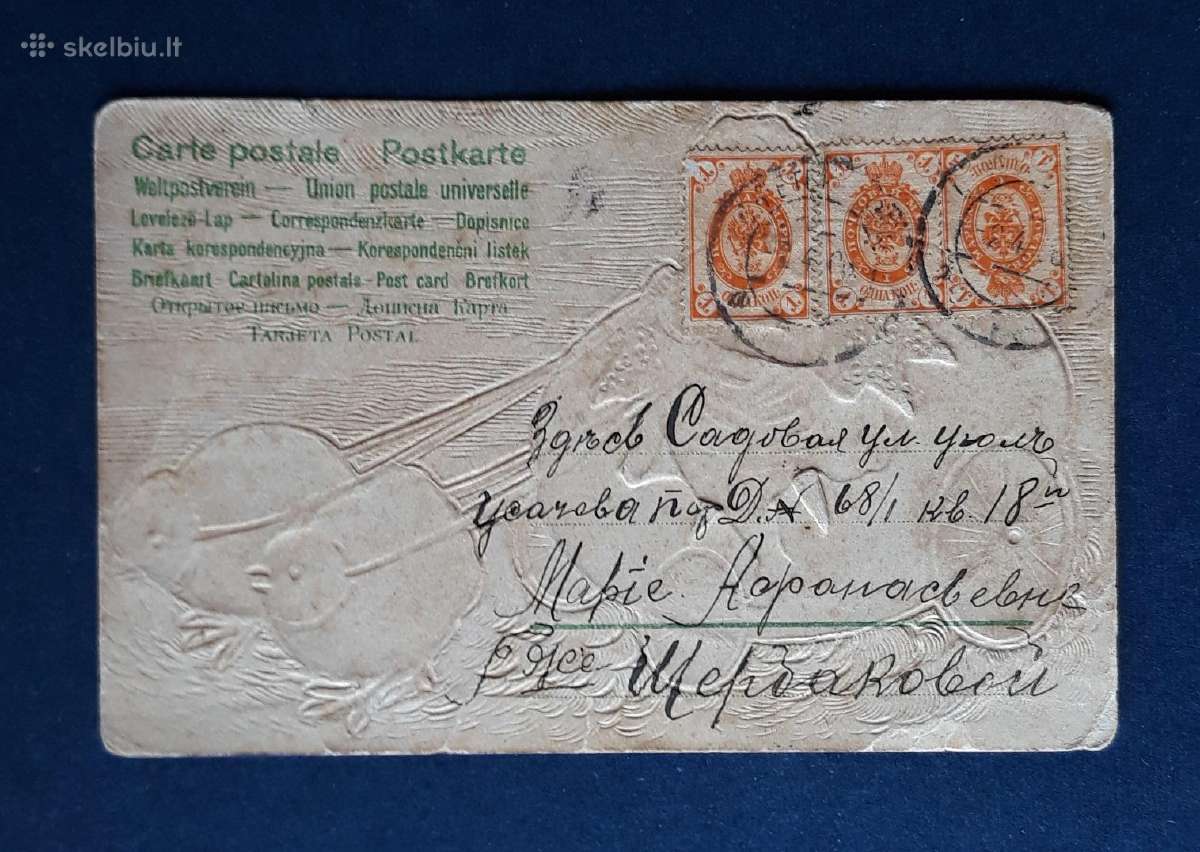 skelbiu.lt
Carte postale Postkarte
Weltpostverein — Union postale universelle
Levelező-Lap — Correspondenzkarte — Dopisnice
Karta korespondencyjna — Korespondenčni listek
Briefkaart Cartolina postale - Post card Brefkort
Открытое письмо — Дописна Карта
Tarjeta Postal
1 1
1 1 КОП. 1 ОДНА КОП. 1
Здѣсь Садовая ул. уголъ
Усачева пер Д.№ 68/1 кв. 18
Маріе Афанасьевне
Щербаковой